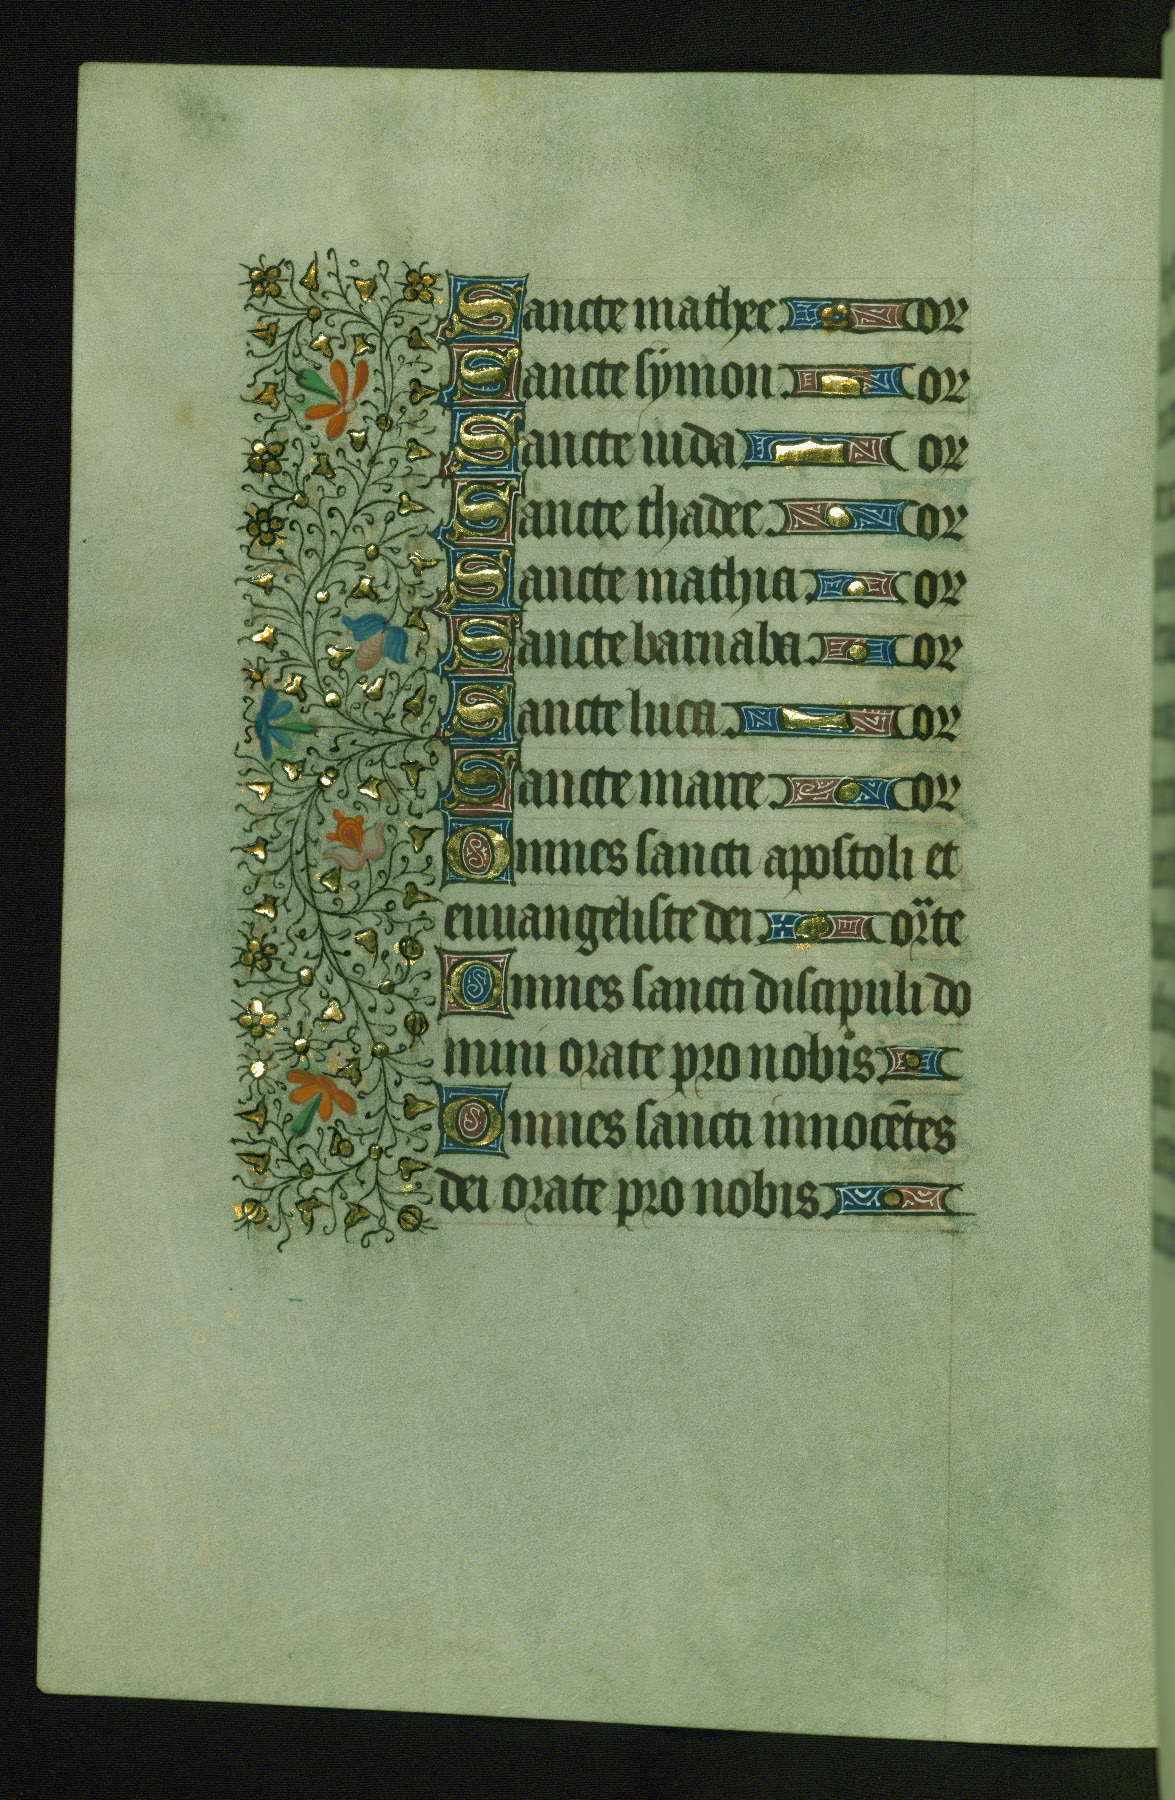 Sancte mathee. or
Sancte symon. or
Sancte iuda or
Sancte thadee. or
Sancte mathia or
Sancte barnaba. or
Sancte luca. or
Sancte marce. or
Omnes sancti apostoli et
euuangeliste dei orate
Omnes sancti discipuli do
mini orate pro nobis
Omnes sancti innocētes
dei orate pro nobis.